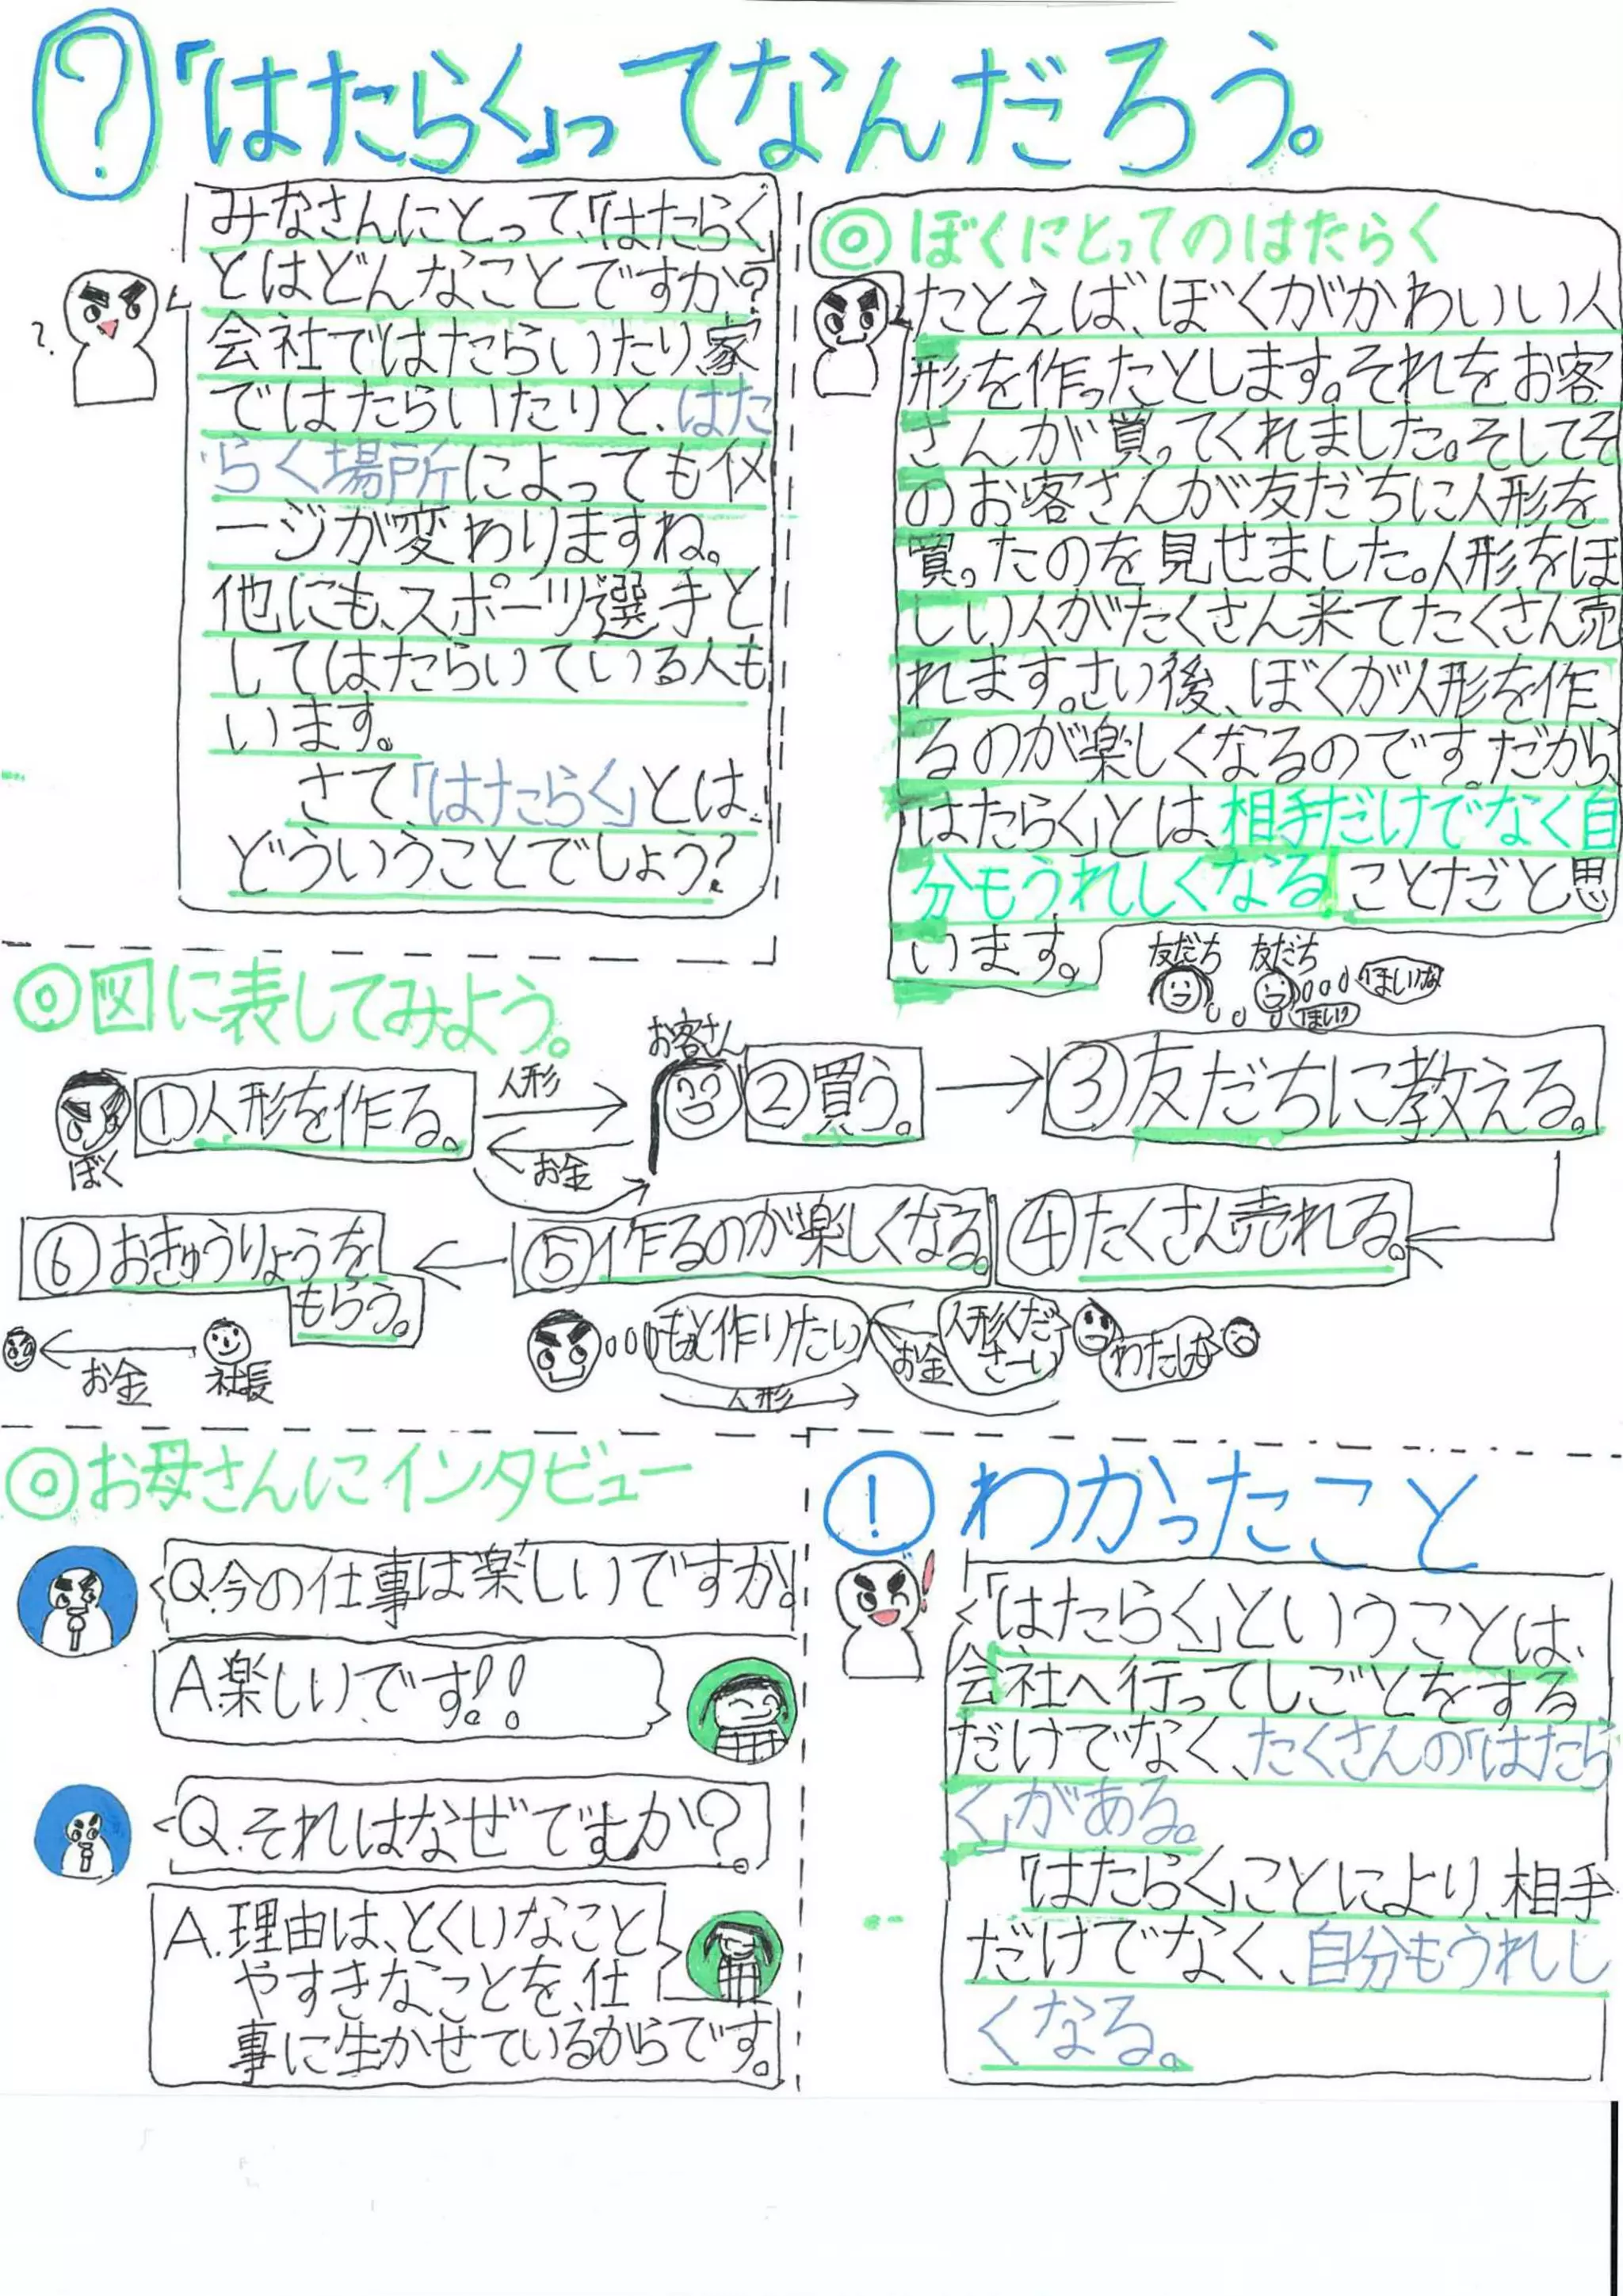 ?
「はたらく」ってなんだろう。
みなさんにとって、「はたらく
とはどんなことですか?
会社ではたらいたり、家
ではたらいたりと、はた
らく場所によってもイメ
ージが変わりますね。
他にも、スポーツ選手と
してはたらいている人も
います。
さて、「はたらく」とは
どういうことでしょう?
?
◎ぼくにとってのはたらく
たとえば、ぼくがかわいい人
形を作ったとします。それをお客
さんが買ってくれました。そしてそ
のお客さんが友だちに人形を
買ったのを見せました。人形をほ
しい人がたくさん来てたくさん売
れます。さい後、ぼくが人形を作
るのが楽しくなるのです。だから、
「はたらく」とは、相手だけでなく自
分もうれしくなる ことだと思
います。
◎図に表してみよう。
ぼく
①人形を作る。
人形
お金
お客さん
②買う。
友だち
友だち
ほしいな
ほしい
③友だちに教える。
④たくさん売れる。
⑤作るのが楽しくなる。
⑥おきゅうりょうを
もらう。
お金
社長
もっと作りたい
人形
お金
人形くだ
さーい
わたしも
◎お母さんにインタビュー
Q.今の仕事は楽しいですか。
A.楽しいです!!
Q.それはなぜですか?
A.理由は、とくいなこと
やすきなことを、仕
事に生かせているからです。
! わかったこと
「はたらく」ということは、
会社へ行ってしごとをする
だけでなく、たくさんの「はたら
く」がある。
「はたらく」ことにより、相手
だけでなく、自分もうれし
くなる。